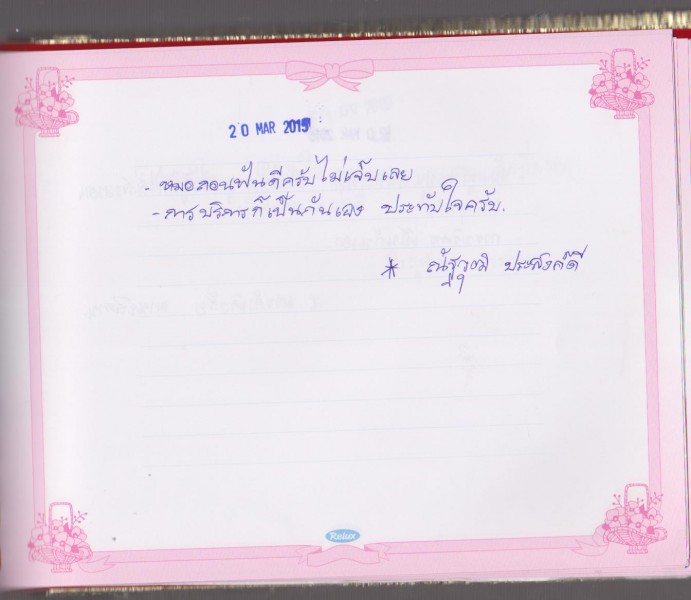 20 MAR 2015
- หมอถอนฟันดีครับไม่เจ็บเลย
- การบริการก็เป็นกันเอง ประทับใจครับ.
* ณัฐวุฒิ ประสงค์ดี
Relux